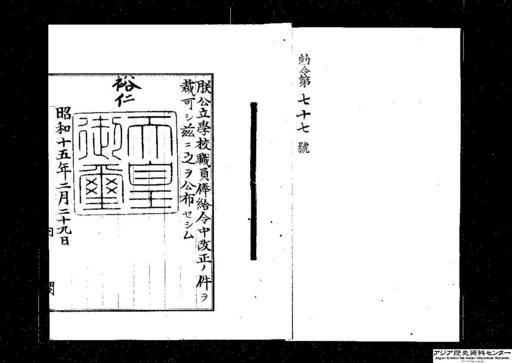 勅令第七十七號
朕公立學校職員俸給令中改正ノ件ヲ
裁可シ茲ニ之ヲ公布セシム
裕仁
天皇
御璽
昭和十五年二月二十九日
内閣
アジア歴史資料センター
Japan Center for Asian Historical Records